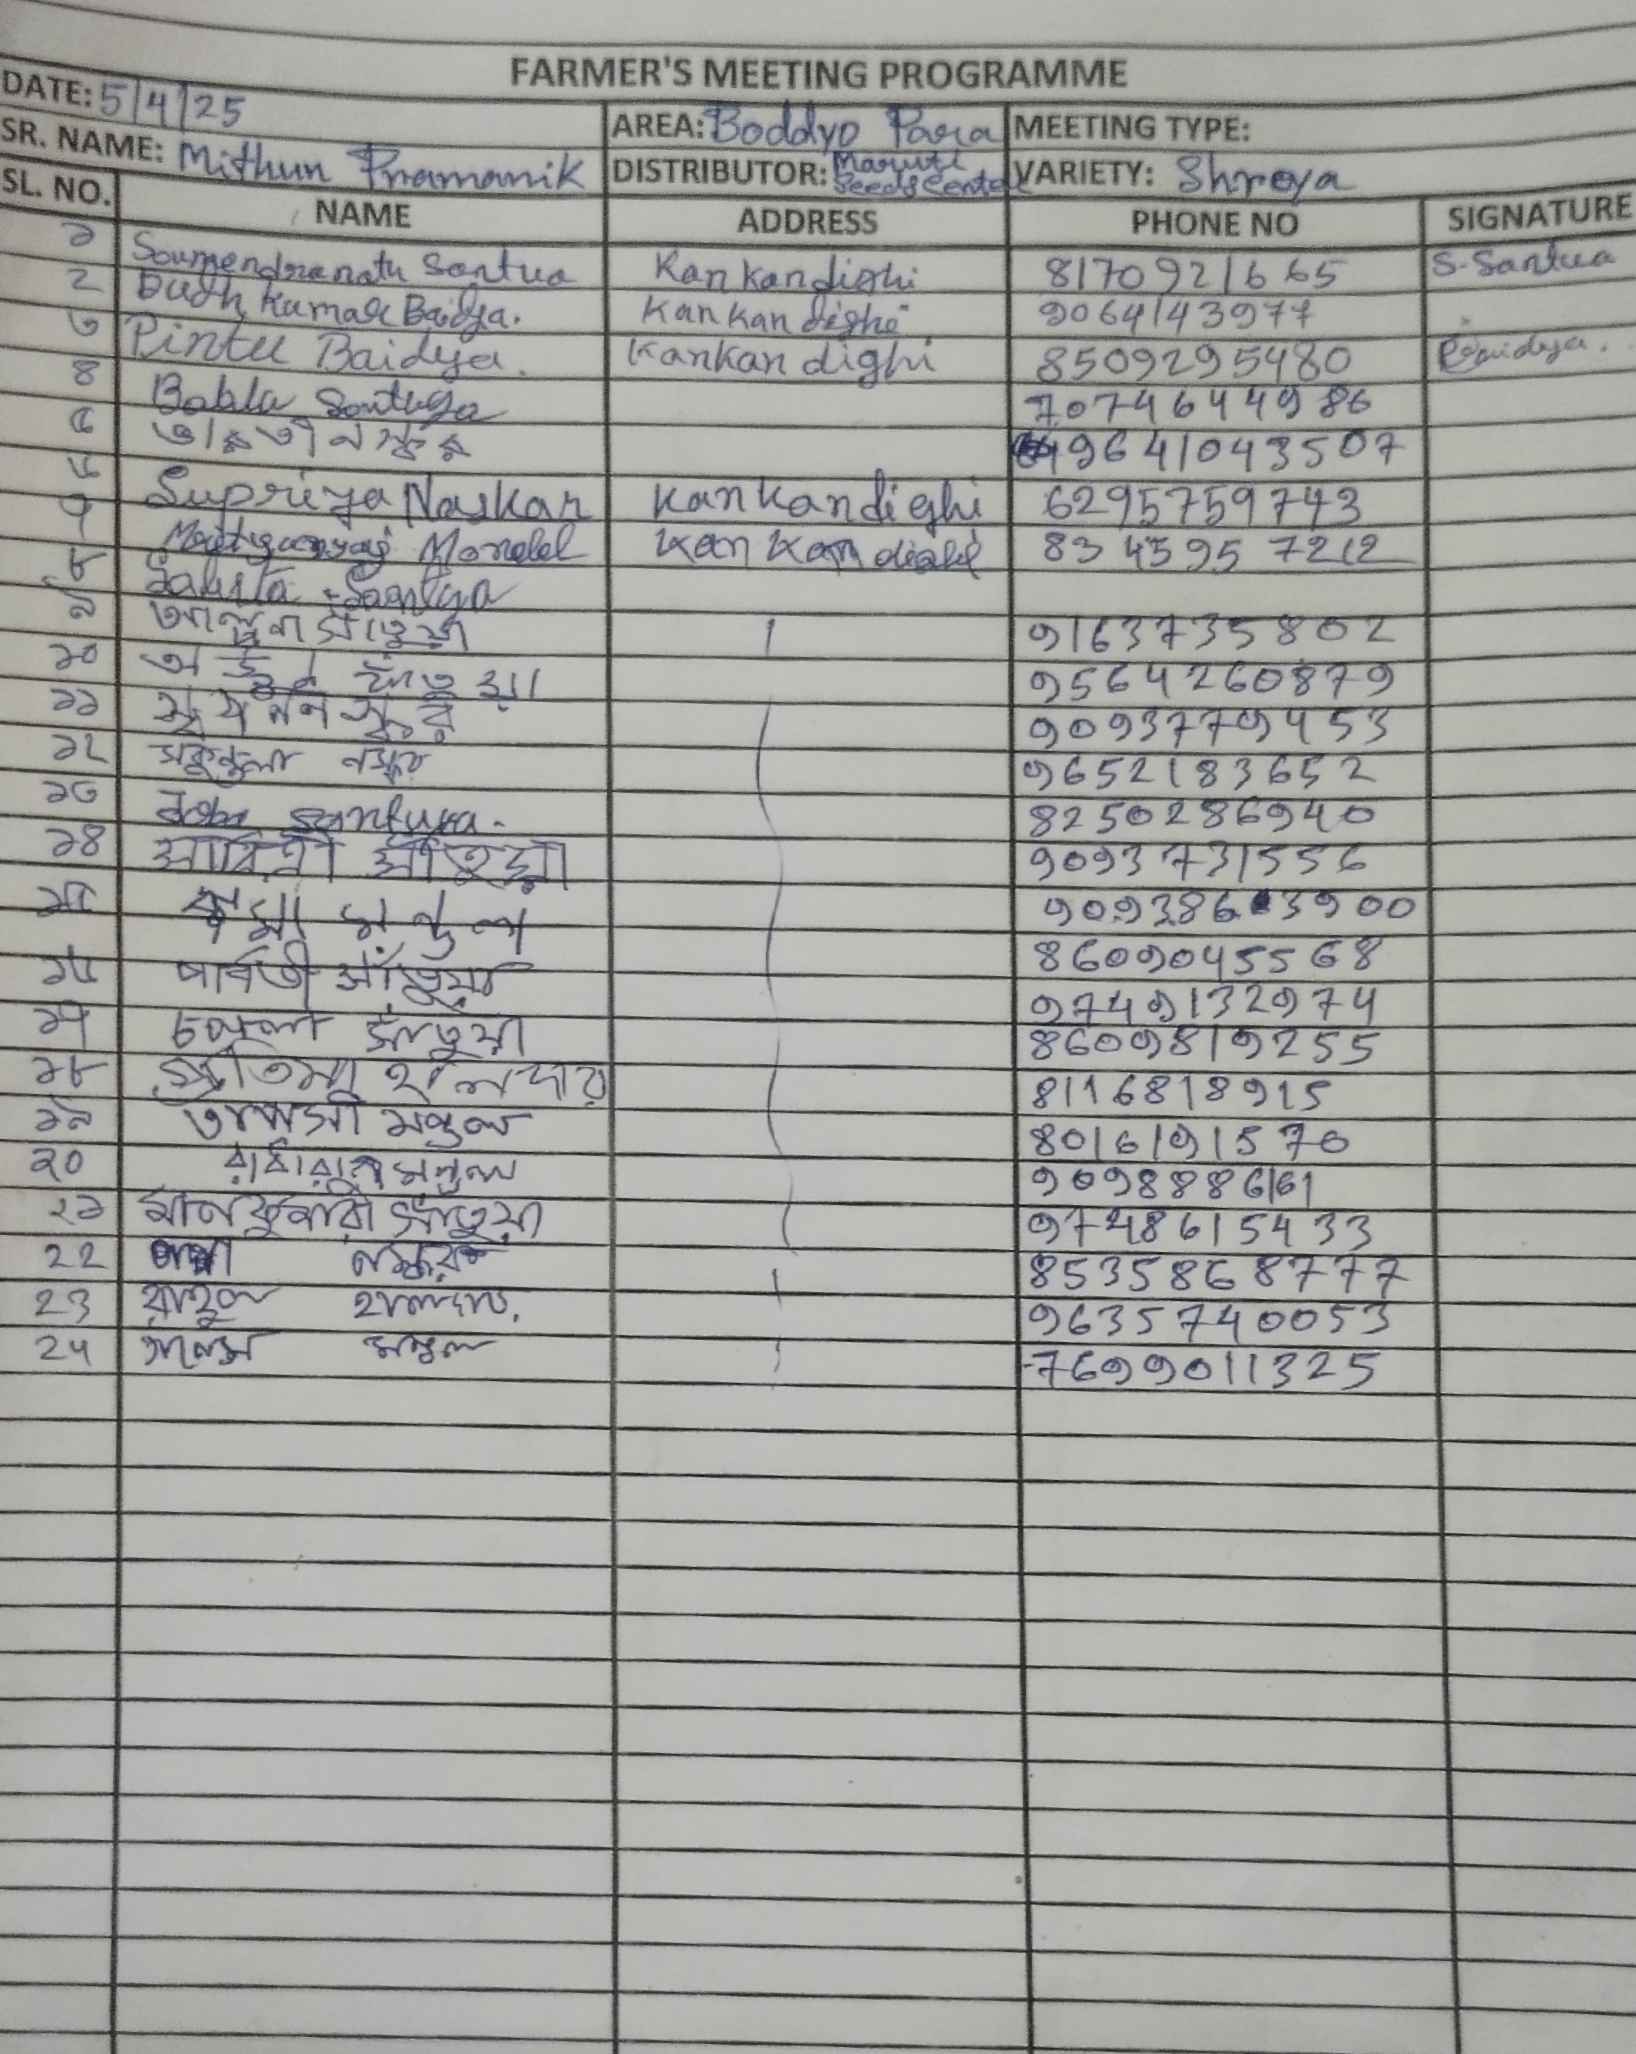 FARMER'S MEETING PROGRAMME
DATE: 5/4/25
AREA: Boddyo Para MEETING TYPE:
SR. NAME: Mithun Pramanik DISTRIBUTOR: Maruti Seeds Center VARIETY: Shreya
SL. NO. NAME ADDRESS PHONE NO SIGNATURE
১ Soumendranath Santua Kankandighi 8170921665 S. Santua
২ Budh Kumar Baidya. Kankandighi 9064143977
৩ Pintu Baidya. Kankandighi 8509295480 P Baidya.
৪ Babla Santuya 7074644986
৫ ভারতী নস্কর 9641043507
৬ Supriya Naskar Kankandighi 6295759743
৭ Mondal Kankandighi 8345957212
৮ Sabita Santya
৯ আল্পনা সাঁতুয়া 9163735802
১০ অর্জুন সাঁতুয়া 9564260879
১১ স্বপন নস্কর 9093779453
১২ সকুন্তলা নস্কর 9652183652
১৩ Santuya. 8250286940
১৪ সাবিত্রী সাঁতুয়া 9093731556
১৫ মন্ডল 9093863900
১৬ পার্বতী সাঁতুয়া 8609045568
9749132974
১৭ চঞ্চলা সাঁতুয়া 8609819255
১৮ প্রতিমা হালদার 8116818915
১৯ তাপসী মণ্ডল 8016191570
২০ রাধারানী মণ্ডল 9098886161
২১ মানকুমারী সাঁতুয়া 9748615433
22 নস্কর 8535868777
23 রাহুল হালদার. 9635740053
24 তাপস মন্ডল 7699011325